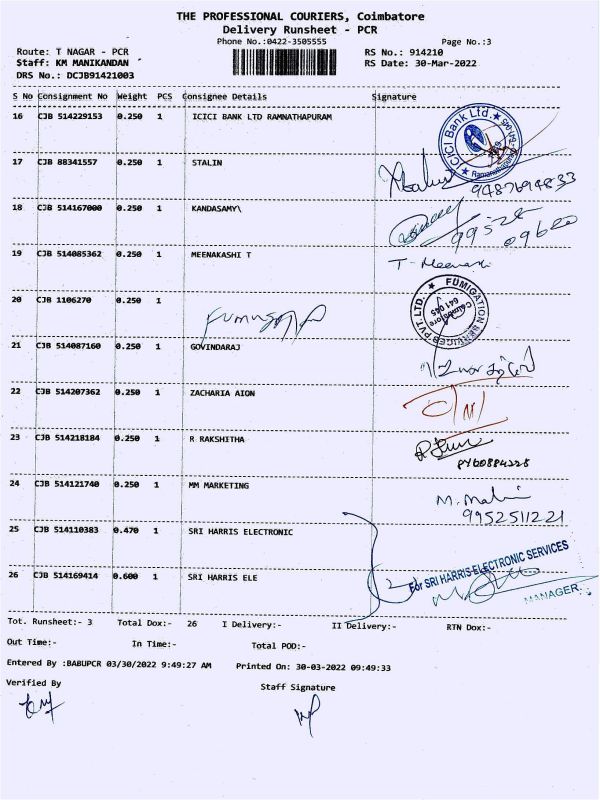 THE PROFESSIONAL COURIERS, Coimbatore
Delivery Runsheet - PCR
Phone No.:0422-3505555
Page No.:3
Route: T NAGAR - PCR
RS No.: 914210
Staff: KM MANIKANDAN
RS Date: 30-Mar-2022
DRS No.: DCJB91421003
S No Consignment No Weight PCS Consignee Details Signature
16 CJB 514229153 0.250 1 ICICI BANK LTD RAMNATHAPURAM
ICICI Bank Ltd.
17 CJB 88341557 0.250 1 STALIN
9487694833
18 CJB 514167000 0.250 1 KANDASAMY\
99528
09600
19 CJB 514085362 0.250 1 MEENAKASHI T
T. Meenakshi
20 CJB 1106270 0.250 1
FUMIGATION SERVICES PVT. LTD.
Coimbatore
641 045
21 CJB 514087160 0.250 1 GOVINDARAJ
22 CJB 514207362 0.250 1 ZACHARIA AION
23 CJB 514218184 0.250 1 R RAKSHITHA
24 CJB 514121740 0.250 1 MM MARKETING
9952511221
25 CJB 514110383 0.470 1 SRI HARRIS ELECTRONIC
For SRI HARRIS ELECTRONIC SERVICES
26 CJB 514169414 0.600 1 SRI HARRIS ELE
MANAGER
Tot. Runsheet:- 3 Total Dox:- 26 I Delivery:- II Delivery:- RTN Dox:-
Out Time:- In Time:- Total POD:-
Entered By :BABUPCR 03/30/2022 9:49:27 AM Printed On: 30-03-2022 09:49:33
Verified By Staff Signature